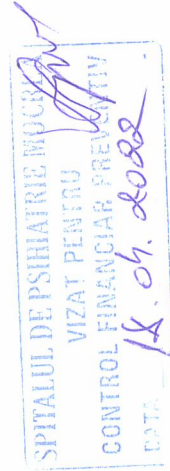 SPITALUL DE PSIHIATRIE
VIZAT PENTRU
CONTROL FINANCIAR PREVENTIV
DATA 18.04.2022